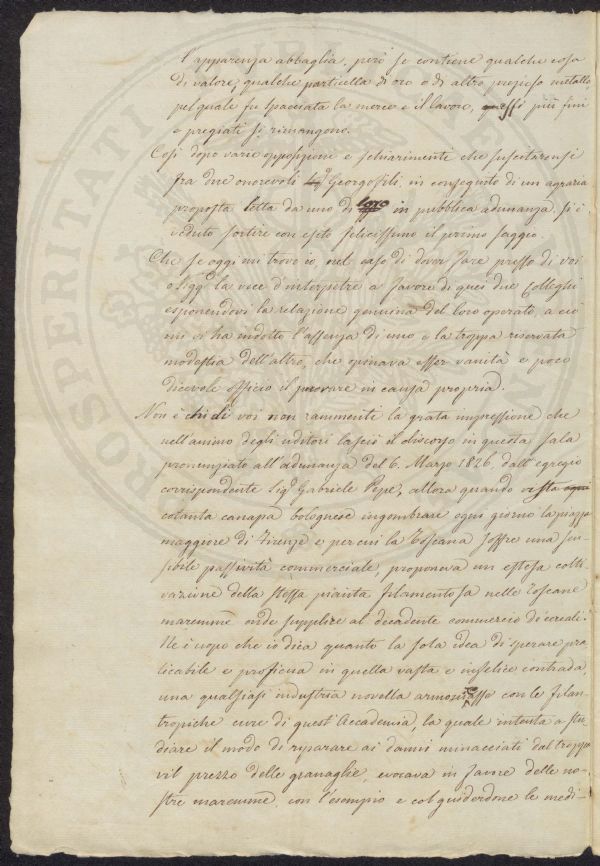 l'apparenza abbaglia, però se contiene qualche cosa
di valore, qualche particella di oro o di altro prezioso metallo
pel quale fu spacciata la merce e il lavoro, essi più fini
e pregiati si rimangono.
Così dopo varie opposizione e schiarimenti che suscitaronsi
fra due onorevoli Georgofili, in conseguito di un agraria
proposta letta da uno di loro in pubblica adunanza, si è
veduto sortire con esito felicissimo il primo saggio.
Che se oggi mi trovo io nel caso di dover fare presso di voi
o Sigg.ri la voce d'interpetre a favore di quei due Colleghi
esponendovi la relazione genuina del loro operato, a ciò
mi ci ha indotto l'assenza di uno e la troppa riservata
modestia dell'altro, che opinava esser vanità e poco
dicevole officio il perorare in causa propria.
Non è chi di voi non rammenti la grata impressione che
nell'animo degli uditori lasciò il discorso in questa sala
pronunziato all'adunanza del 6. Marzo 1826. dall'egregio
corrispondente Sig.r Gabriele Pepe, allora quando vista
cotanta canapa bolognese ingombrare ogni giorno la piazza
maggiore di Firenze e per cui la Toscana soffre una sen-
sibile passività commerciale, proponeva un estesa colti-
vazione della stessa pianta filamentosa nelle Toscane
maremme onde supplire al decadente commercio di cereali.
Nè è uopo che io dica quanto la sola idea di sperare pra-
ticabile e proficua in quella vasta e infelice contrada,
una qualsiasi industria novella armonizzasse con le filan-
tropiche cure di quest'Accademia, la quale intenta a stu-
diare il modo di riparare ai danni minacciati dal troppo
vil prezzo delle granaglie, evocava in favore delle no-
stre maremme, con l'esempio e col guiderdone le medi-